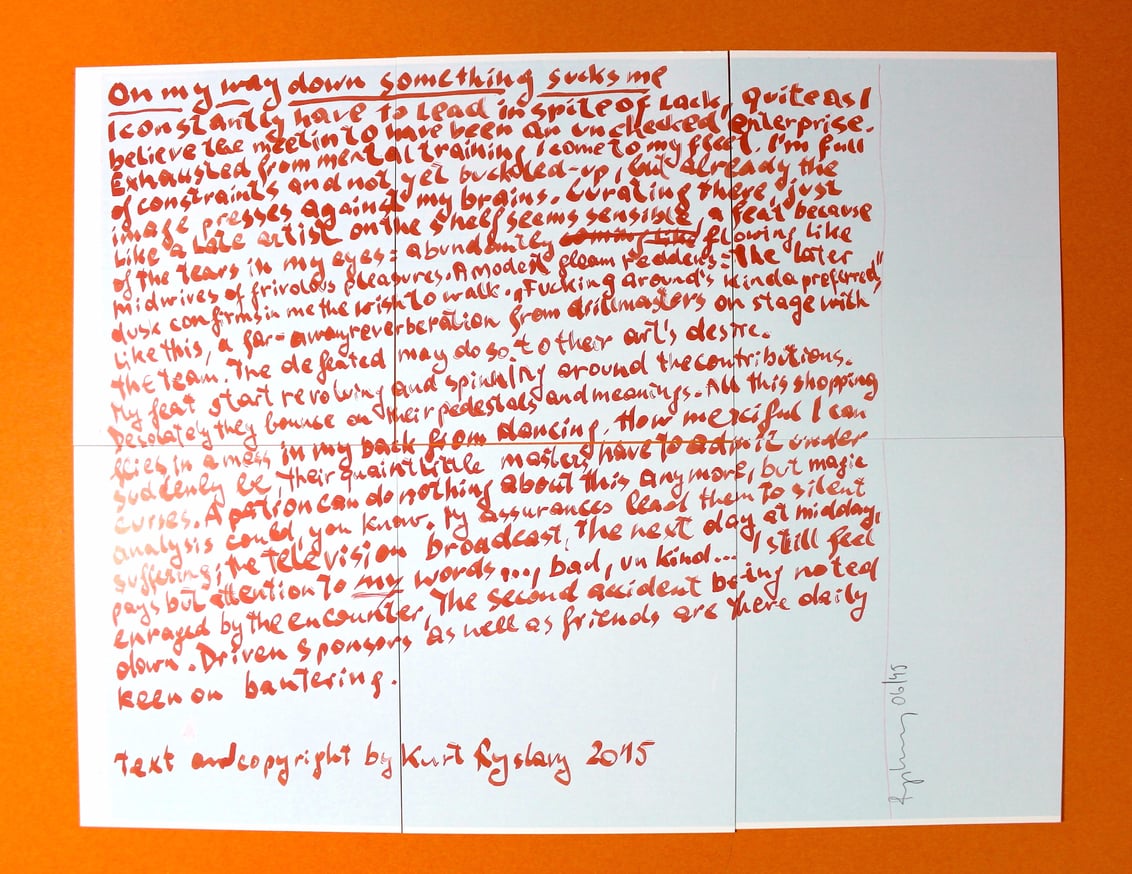 On my way down something sucks me
I constantly have to lead in spite of lack, quite as I
believe the meetin to have been an unchecked enterprise.
Exhausted from mental training I come to my fleet. I'm full
of constraints and not yet buckeled-up, but already the
image presses against my brains. Curating there, just
like a late artist on the shelf seems sensible, a feat because
of the tears in my eyes: abundantly coming like flowing like
midwives of frivolous pleasures. A modest gleam reddens: The later
dusk confirms in me the wish to walk. „Fucking around's kinda preferred"
like this, a far-away reverberation from drillmasters on stage with
the team. The defeated may do so to their art's desire.
My feat start revolving and spinning around the contributions.
Desolately they bounce on their pedestals and meanings. All this shopping
flies in a mess in my back from dancing. How merciful I can
suddenly be, their quaint little masters have to admit under
curses. A pation can do nothing about this anymore, but magic
analysis could, you know. My assurances lead them to silent
suffering; the television broadcast, the next day at midday,
pays but attention to my words..., bad, unkind... I still feel
enraged by the encounter, The second accident being noted
down. Driven sponsors as well as friends are there daily
keen on bantering.
Text and copyright by Kurt Ryslavy 2015
06/15